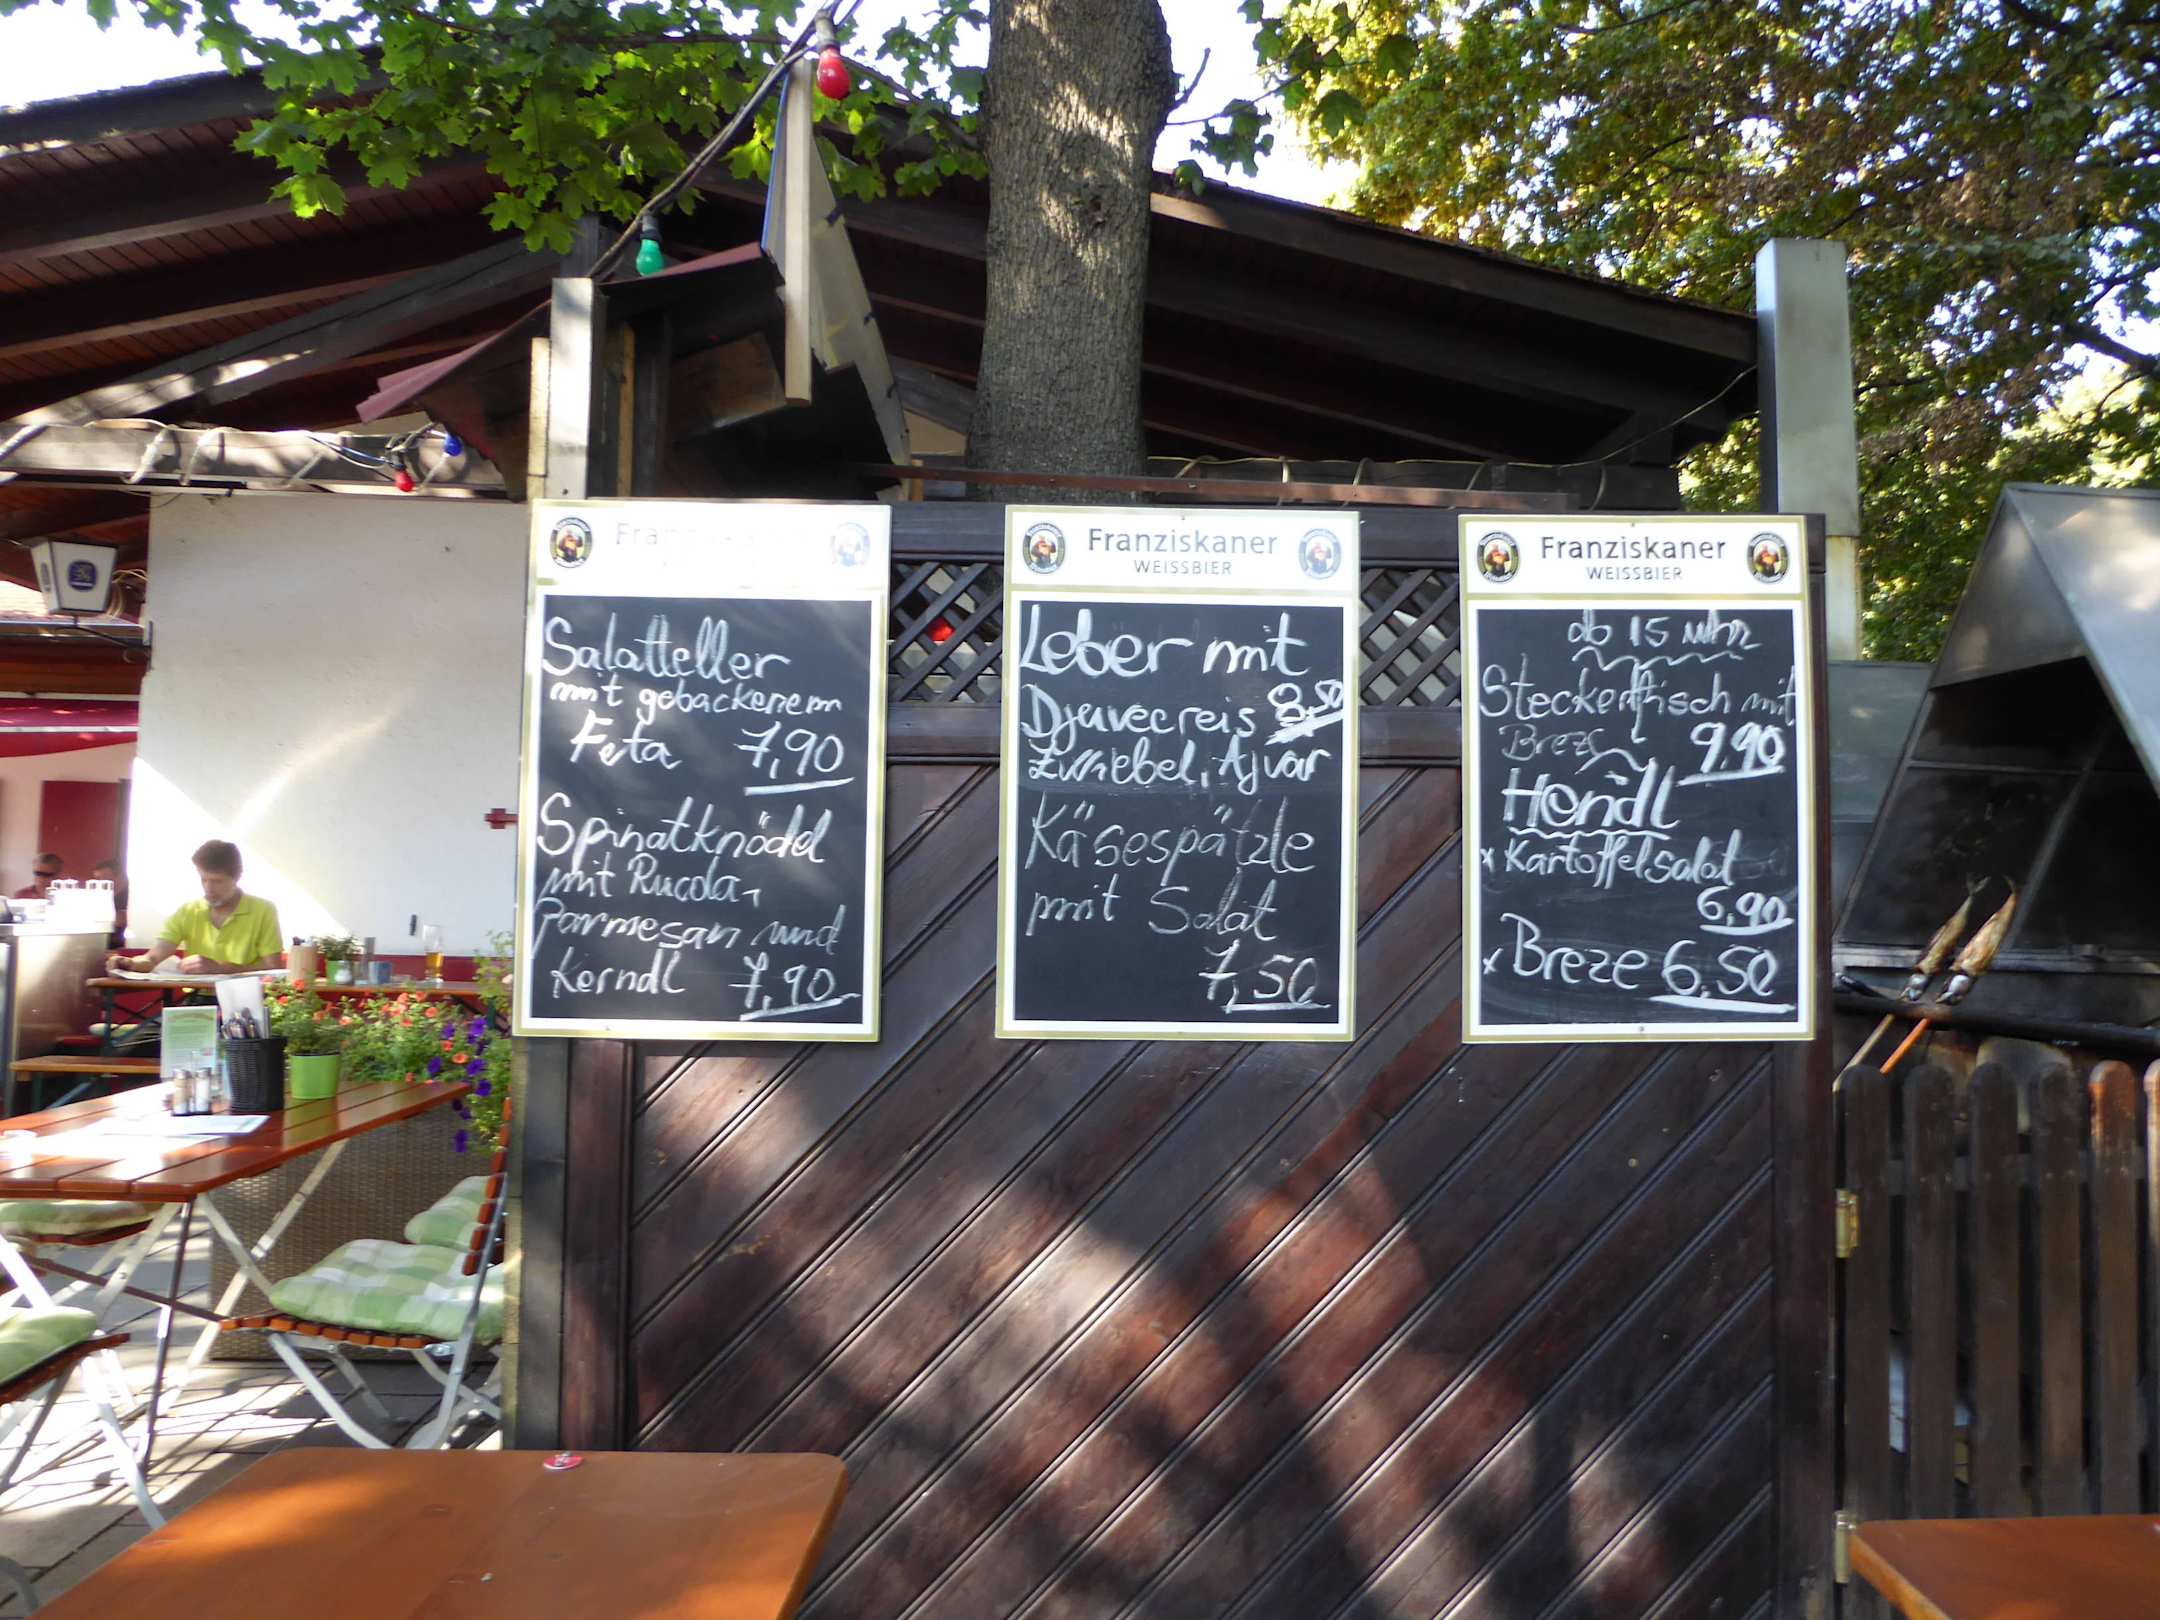 Salatteller
mit gebackenem
Feta 7,90
Spinatknödel
mit Rucola,
Parmesan und
Kerndl 7,90
Franziskaner
WEISSBIER
Leber mit
Djuvecreis 8,50
Zwiebel, Ajvar
Käsespätzle
mit Salat
7,50
Franziskaner
WEISSBIER
ab 15 Uhr
Steckerlfisch mit
Breze 9,90
Hendl
x Kartoffelsalat
6,90
x Breze 6,50